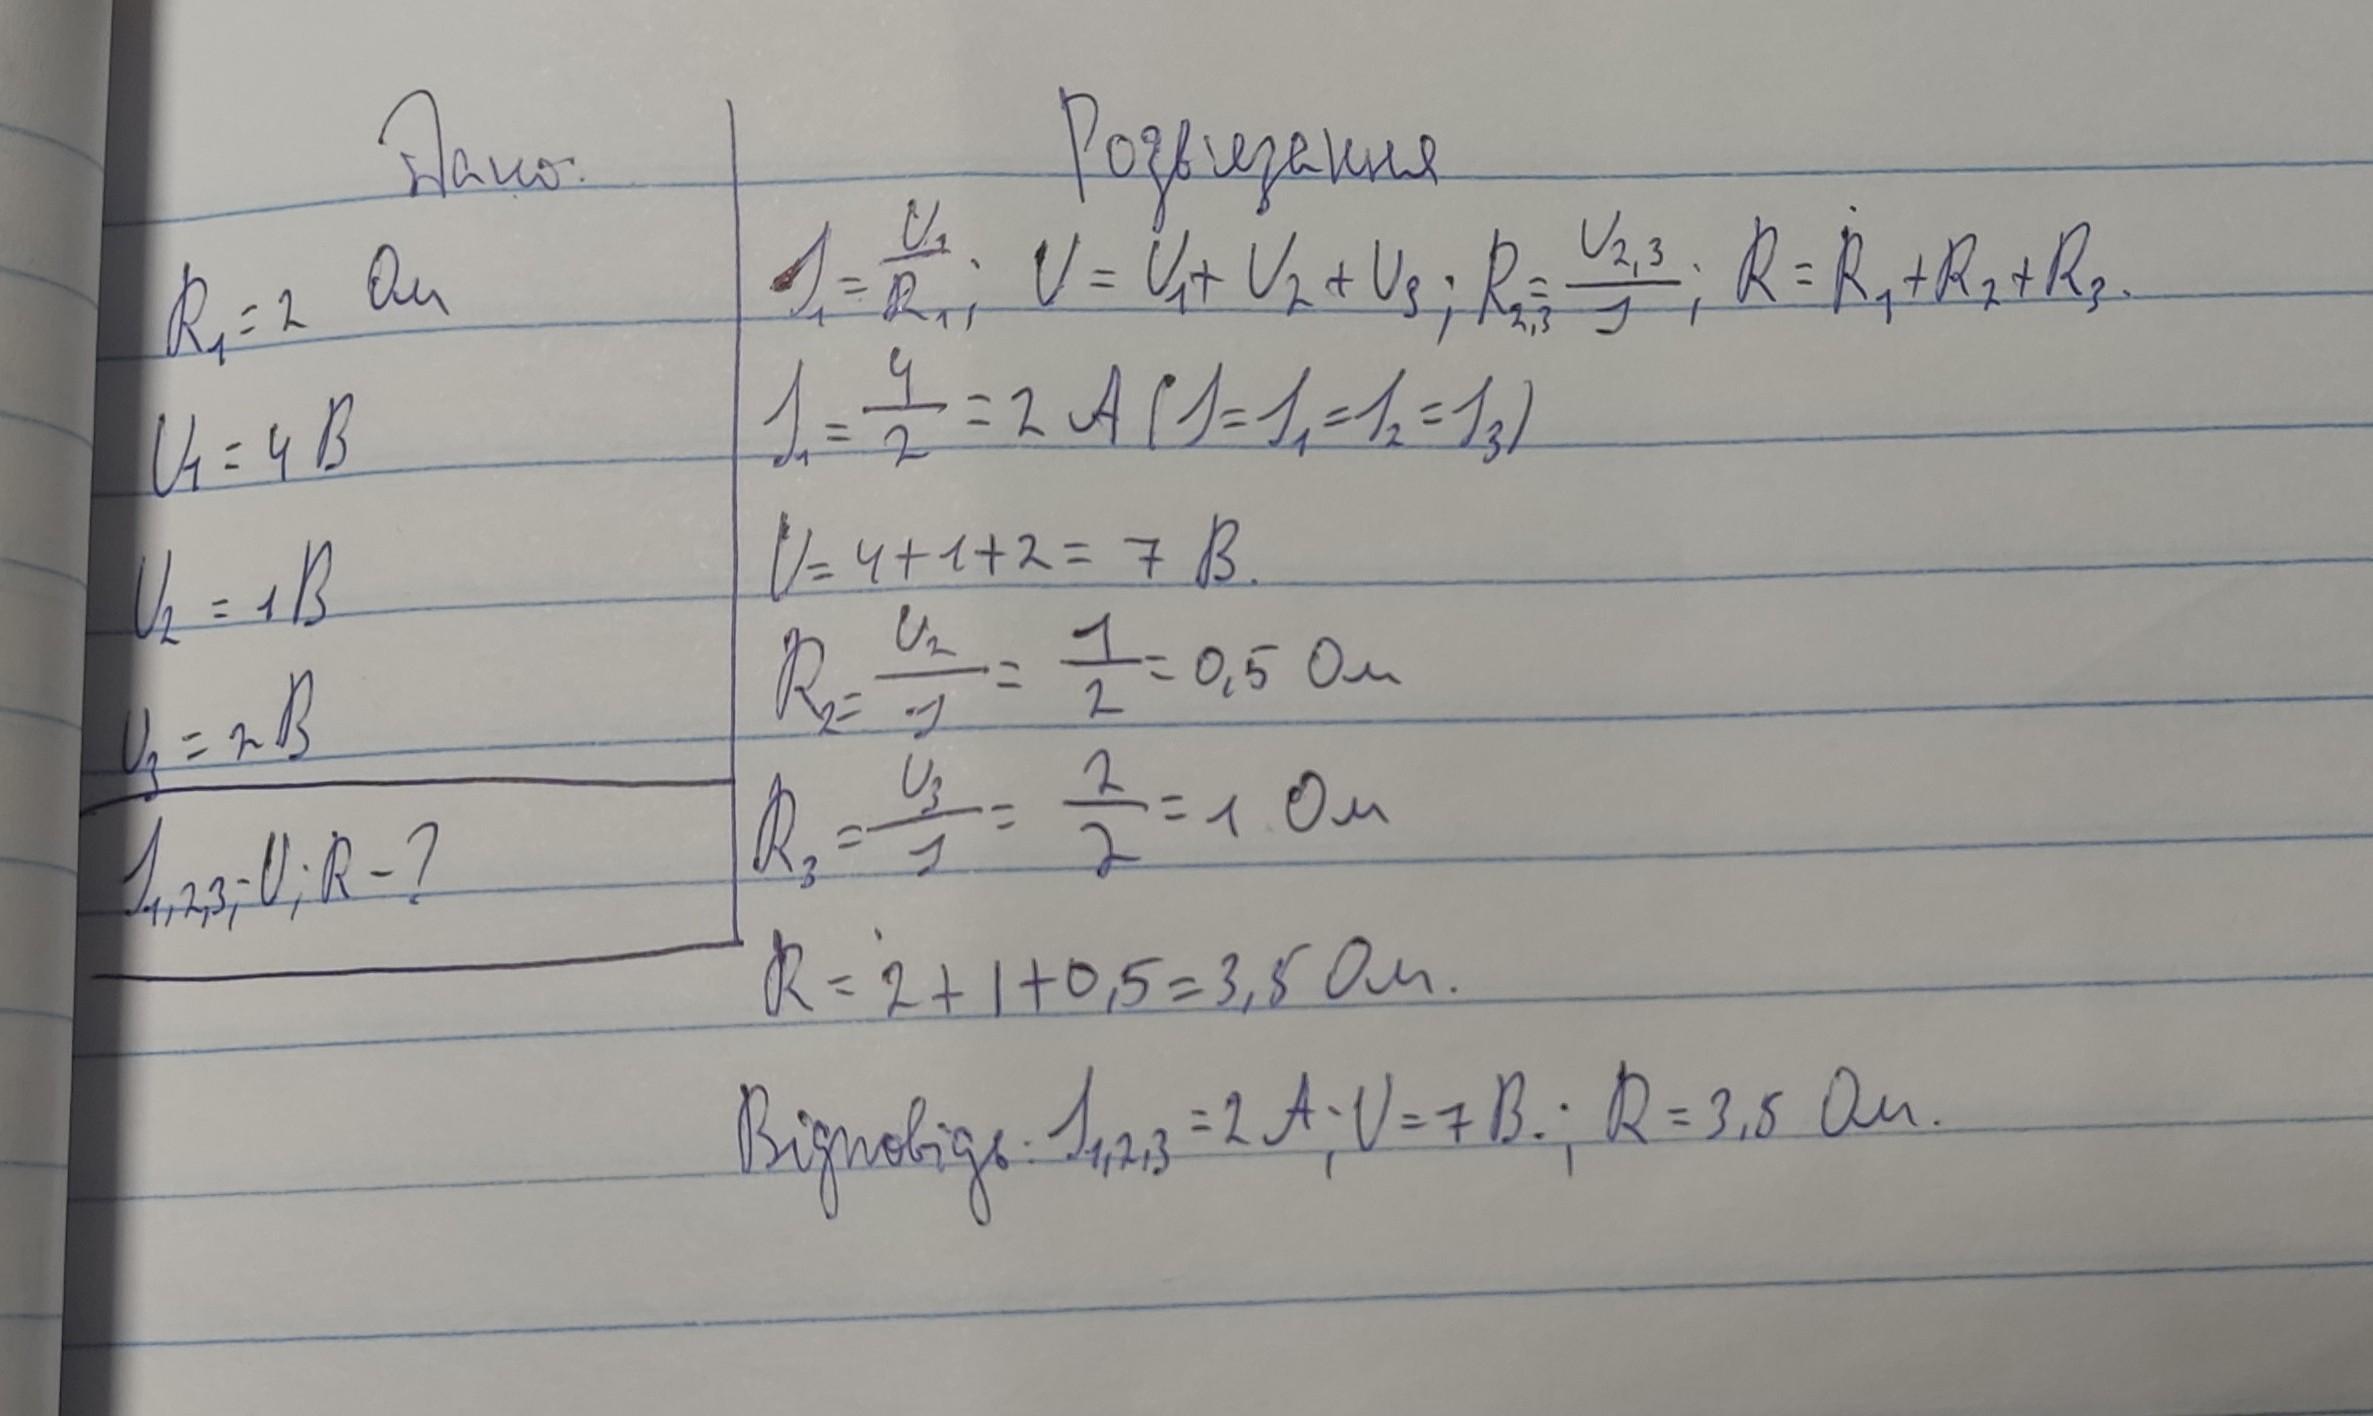 Дано:
R₁ = 2 Ом
U₁ = 4 В
U₂ = 1 В
U₃ = 2 В
I₁,₂,₃; U; R - ?
Розвʼязання
I₁ = U₁/R₁; U = U₁ + U₂ + U₃; R₂,₃ = U₂,₃/I; R = R₁ + R₂ + R₃.
I₁ = 4/2 = 2 А (I = I₁ = I₂ = I₃)
U = 4 + 1 + 2 = 7 В.
R₂ = U₂/I = 1/2 = 0,5 Ом
R₃ = U₃/I = 2/2 = 1 Ом
R = 2 + 1 + 0,5 = 3,5 Ом.
Відповідь: I₁,₂,₃ = 2 А; U = 7 В.; R = 3,5 Ом.